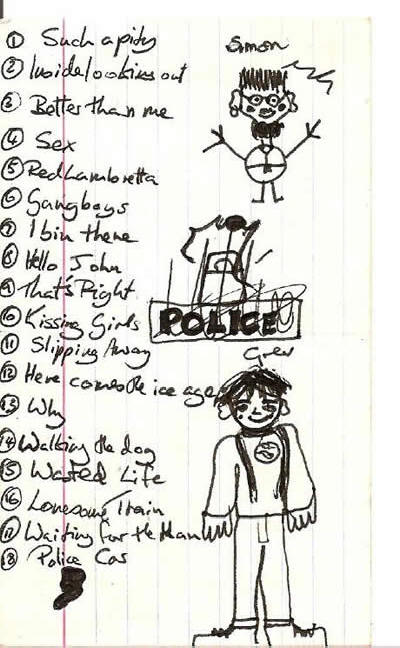 ① Such a pity
Simon
② Inside looking out
③ Better than me
④ Sex
⑤ Red Lambretta
⑥ Gangboys
⑦ I bin there
⑧ Hello John
⑨ That's Right
⑩ Kissing Girls
POLICE
⑪ Slipping Away
⑫ Here comes the ice age
⑬ Why
⑭ Walking the dog
⑮ Wasted Life
⑯ Lonesome Train
⑰ Waiting for the Man
⑱ Police Car